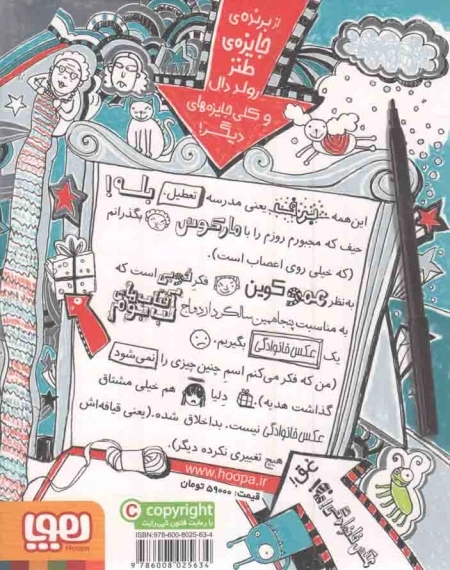 از برنده‌ی
جایزه‌ی
طنز
رولد دال
و کلی جایزه‌های
دیگر!
این همه برف یعنی مدرسه تعطیل. بله!
حیف که مجبورم روزم را با مارکوس بگذرانم
(که خیلی روی اعصاب است).
به‌نظر عمو کوین فکر خوبی است که
به مناسبت پنجاهمین سالگرد ازدواج
یک عکس خانوادگی بگیریم.
(من که فکر می‌کنم اسم چنین چیزی را نمی‌شود
گذاشت هدیه). دلیا هم خیلی مشتاق
عکس خانوادگی نیست. بداخلاق شده. (یعنی قیافه‌اش
هیچ تغییری نکرده دیگر).
www.hoopa.ir
قیمت: ۵۹۰۰۰ تومان
هوپا
Hoopa
© copyright
با رعایت قانون کپی‌رایت
ISBN:978-600-8025-63-4
9 786008 025634